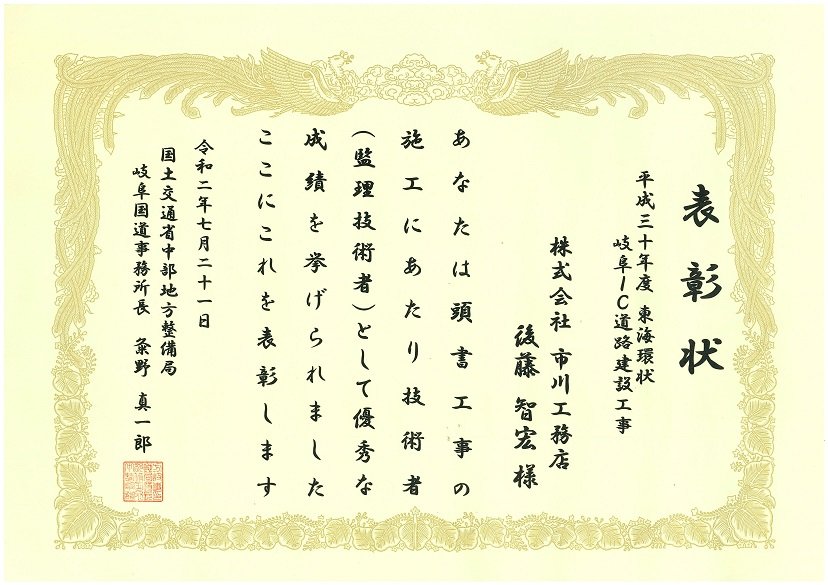 表彰状
平成三十年度 東海環状
岐阜IC道路建設工事
株式会社 市川工務店
後藤 智宏 様
あなたは頭書工事の
施工にあたり技術者
(監理技術者)として優秀な
成績を挙げられました
ここにこれを表彰します
令和二年七月二十一日
国土交通省中部地方整備局
岐阜国道事務所長 粂野 真一郎